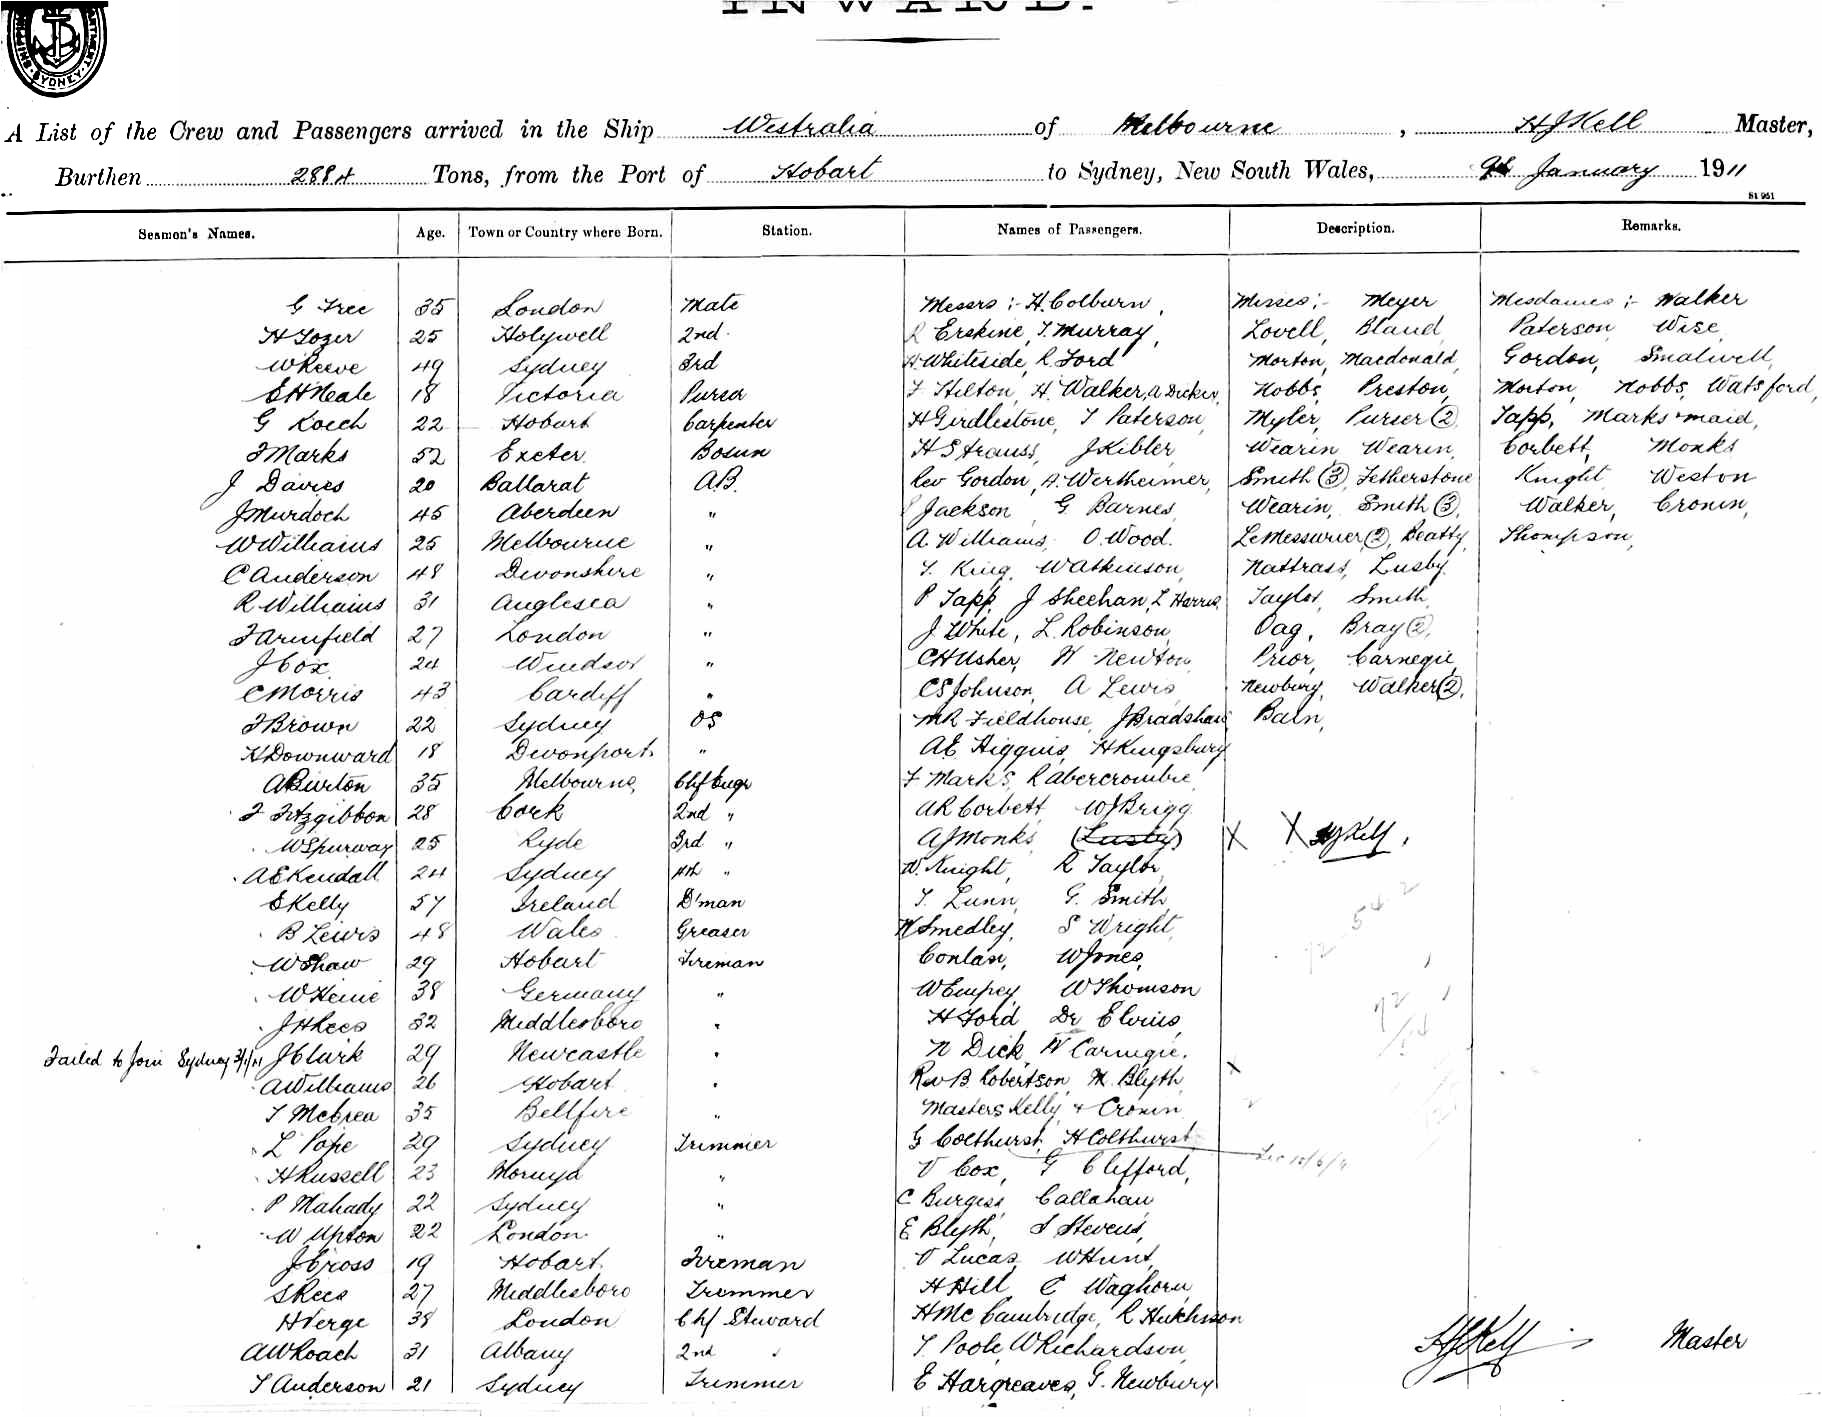 INWARD.
SYDNEY
A List of the Crew and Passengers arrived in the Ship Westralia of Melbourne, HJKell Master,
Burthen 2884 Tons, from the Port of Hobart to Sydney, New South Wales, 9th January 1911
S1 951
Seamen's Names. Age. Town or Country where Born. Station. Names of Passengers. Description. Remarks.
G Free 35 London Mate Messrs :- H. Colburn, Misses :- Meyer Mesdames :- Walker
H Tozer 25 Holywell 2nd R Erskine, T. Murray, Lovell, Bland Paterson Wise
W Reeve 49 Sydney 3rd H Whiteside, R Ford Morton, Macdonald, Gordon, Smalwell,
E H Neale 18 Victoria Purser F Hilton, H Walker, A Dicker, Hobbs, Preston, Morton, Hobbs, Watsford,
G Koech 22 Hobart Carpenter H Girdlestone, T Paterson, Myler, Purser (2) Tapp, Marks + maid,
F Marks 52 Exeter Bosun H Strauss, J Kibler, Wearin Wearin, Corbett, Monks
J Davies 20 Ballarat A.B. Rev Gordon, A. Wertheimer, Smith (3), Fetherstone Knight Weston
J Murdoch 45 Aberdeen " Jackson G. Barnes, Wearin, Smith (3), Walker, Cronin,
W Williams 25 Melbourne " A. Williams, O. Wood. LeMessurier (2), Beatty, Thompson,
C Anderson 48 Devonshire " T. King, W Atkinson, Nattrass, Lusby.
R Williams 31 Anglesea " P Tapp, J Sheehan, L Harris, Taylor, Smith,
F Armfield 27 London " J. White, L. Robinson, Dag, Bray (2),
J Cox 24 Windsor " C H Usher, W Newton, Prior, Carnegie,
C Morris 43 Cardiff " C S Johnson, A Lewis, Newbury, Walker (2),
F Brown 22 Sydney OS M R Fieldhouse, J Bradshaw Bain,
H Downward 18 Devonport " A E Higgins, H Kingsbury
A Burton 35 Melbourne, Chf Engr F Marks, R Abercrombie,
F Fitzgibbon 28 Cork 2nd " A R Corbett W J Brigg.
W Spurway 25 Ryde 3rd " A J Monks (Lusby) X X HJKell,
A E Kendall 24 Sydney 4th " W. Knight, R Taylor,
E Kelly 57 Ireland D'man T. Lunn, G. Smith,
B Lewis 48 Wales Greaser H Smedley, S Wright,
W Shaw 29 Hobart Fireman Conlan, W Jones,
W Heine 38 Germany " W Empey, W Thomson
J H Rees 32 Middlesboro " H Ford Dr Elvins,
Failed to Join Sydney J Clark 29 Newcastle " N Dick, W Carnegie.
A Williams 26 Hobart " Rev B. Robertson, M. Blyth,
T McCrea 35 Bellfire " Masters Kelly + Cronin
L Pope 29 Sydney Trimmer G Colthurst, H Colthurst
H Russell 23 Moruya " V Cox, G Clifford,
P Mahady 22 Sydney " C Burgess, Callahan
W Upton 22 London " E Blyth, S Stevens,
J Cross 19 Hobart Fireman V Lucas, W Hunt,
S Rees 27 Middlesboro Trimmer H Hill C Waghorn,
H Verge 38 London Chf Steward H McCambridge, R Hutchison
A W Roach 31 Albany 2nd " T. Poole, W Richardson, HJKell Master
T Anderson 21 Sydney Trimmer E Hargreaves, G. Newbury